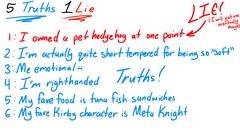 5 Truths 1 Lie
LIE!
1: I owned a pet hedgehog at one point
2: I'm actually quite short tempered for being so "soft"
3: Me emotional
4: I'm righthanded
Truths!
5: My fave food is tuna fish sandwiches
6: My fave Kirby character is Meta Knight